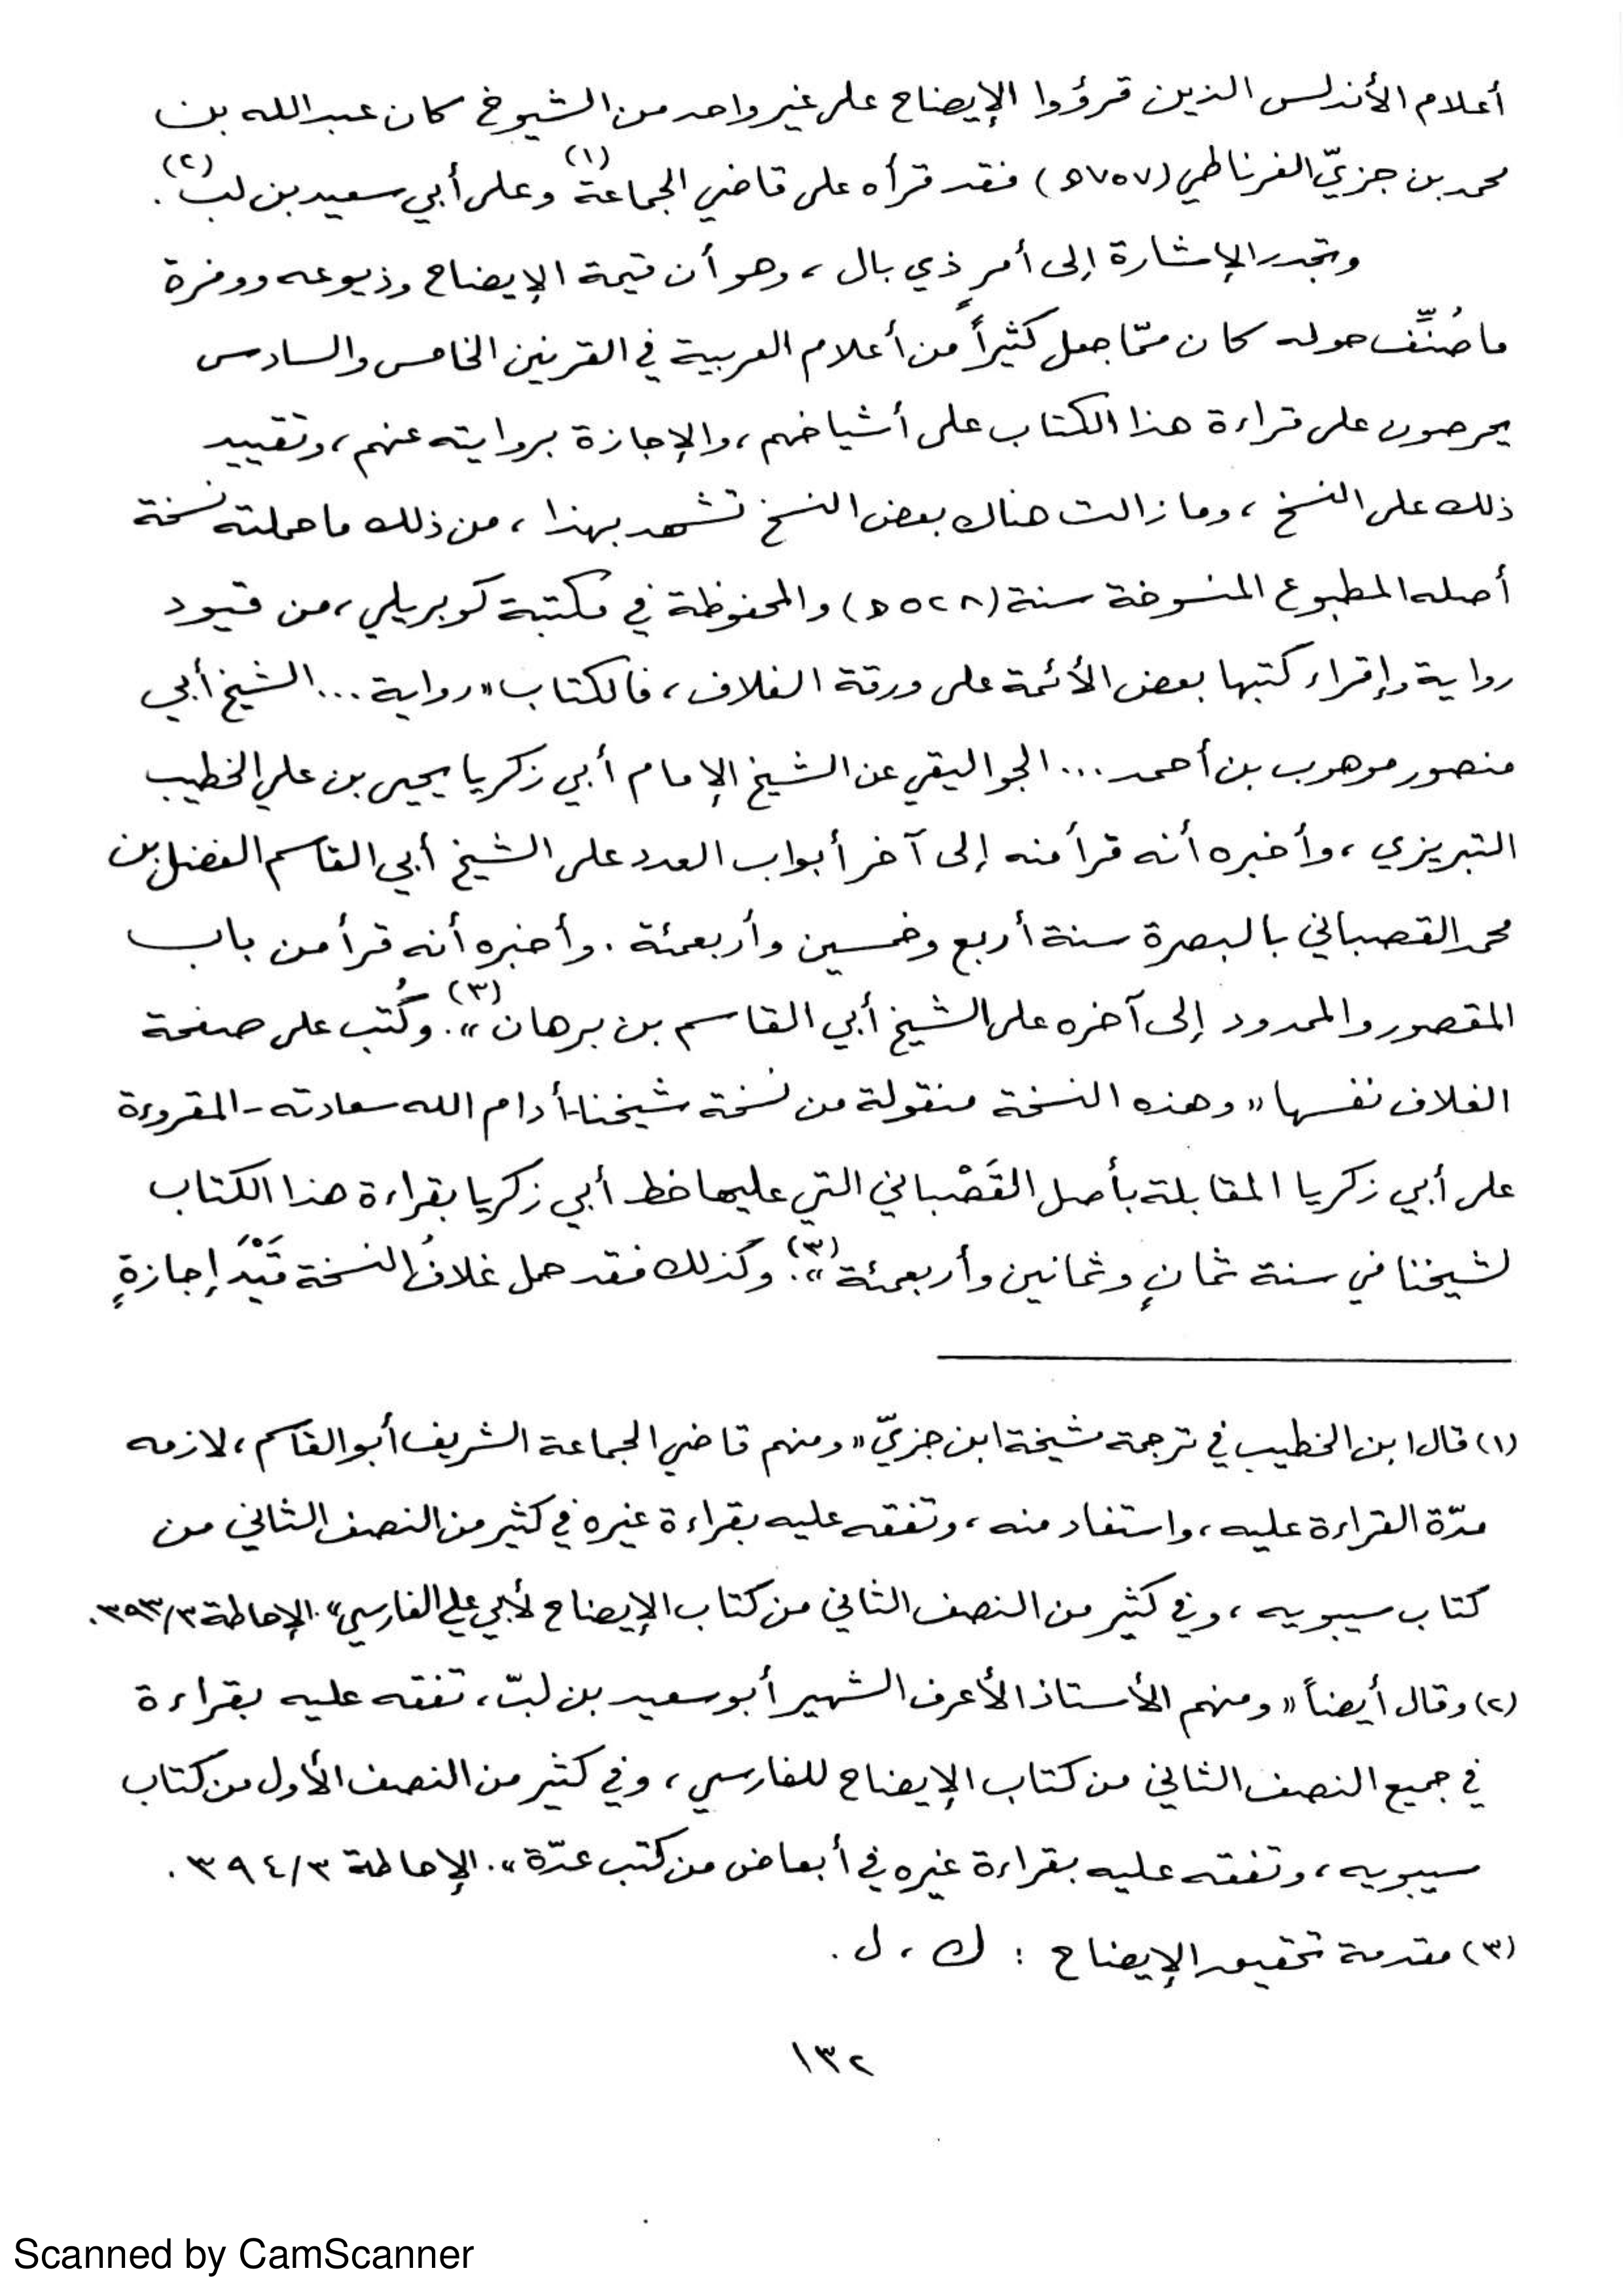 أعلام الأندلس الذين قرؤوا الإيضاح على غير واحد من الشيوخ كان عبدالله بن
محمد بن جزيّ الغرناطي (٧٥٧ه) فقد قرأه على قاضي الجماعة(١) وعلى أبي سعيد بن لب(٢).
وتجدر الإشارة إلى أمرٍ ذي بال، وهو أن قيمة الإيضاح وذيوعه ووفرة
ما صُنِّف حوله كان ممّا جعل كثيراً من أعلام العربية في القرنين الخامس والسادس
يحرصون على قراءة هذا الكتاب على أشياخهم، والإجازة بروايته عنهم، وتقييد
ذلك على النسخ، وما زالت هناك بعض النسخ تشهد بهذا، من ذلك ما حملته نسخة
أصله المطبوع المنسوخة سنة (٥٢٨ه) والمحفوظة في مكتبة كوبريلي، من قيود
رواية وإقراء كتبها بعض الأئمة على ورقة الغلاف، فالكتاب «رواية ... الشيخ أبي
منصور موهوب بن أحمد ... الجواليقي عن الشيخ الإمام أبي زكريا يحيى بن علي الخطيب
التبريزي، وأخبره أنه قرأ منه إلى آخر أبواب العدد على الشيخ أبي القاسم الفضل بن
محمد القصباني بالبصرة سنة أربع وخمسين وأربعمئة. وأخبره أنه قرأ من باب
المقصور والممدود إلى آخره على الشيخ أبي القاسم بن برهان»(٣). وكُتب على صفحة
الغلاف نفسها «وهذه النسخة منقولة من نسخة شيخنا-أدام الله سعادته-المقروءة
على أبي زكريا المقابلة بأصل القَصْباني التي عليها خط أبي زكريا بقراءة هذا الكتاب
لشيخنا في سنة ثمانٍ وثمانين وأربعمئة»(٣). وكذلك فقد حمل غلافُ النسخة قَيْدَ إجازةٍ
(١) قال ابن الخطيب في ترجمة مشيخة ابن جزيّ «ومنهم قاضي الجماعة الشريف أبو القاسم، لازمه
مدّة القراءة عليه، واستفاد منه، وتفقه عليه بقراءة غيره في كثير من النصف الثاني من
كتاب سيبويه، وفي كثير من النصف الثاني من كتاب الإيضاح لأبي علي الفارسي». الإحاطة ٣/٣٩٣.
(٢) وقال أيضاً «ومنهم الأستاذ الأعرف الشهير أبو سعيد بن لبّ، تفقه عليه بقراءة
في جميع النصف الثاني من كتاب الإيضاح للفارسي، وفي كثير من النصف الأول من كتاب
سيبويه، وتفقه عليه بقراءة غيره في أبعاض من كتب عدّة». الإحاطة ٣/٣٩٤.
(٣) مقدمة تحقيق الإيضاح : ك، ل.
١٣٢
Scanned by CamScanner